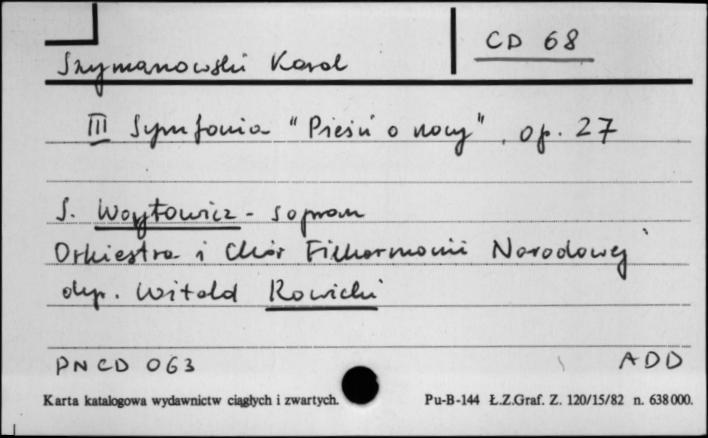 CD 68
Szymanowski Karol
III Symfonia "Pieśń o nocy", op. 27
S. Woytowicz - sopran
Orkiestra i Chór Filharmonii Narodowej
dyr. Witold Rowicki
PNCD 063 ADD
Karta katalogowa wydawnictw ciągłych i zwartych. Pu-B-144 Ł.Z.Graf. Z. 120/15/82 n. 638000.